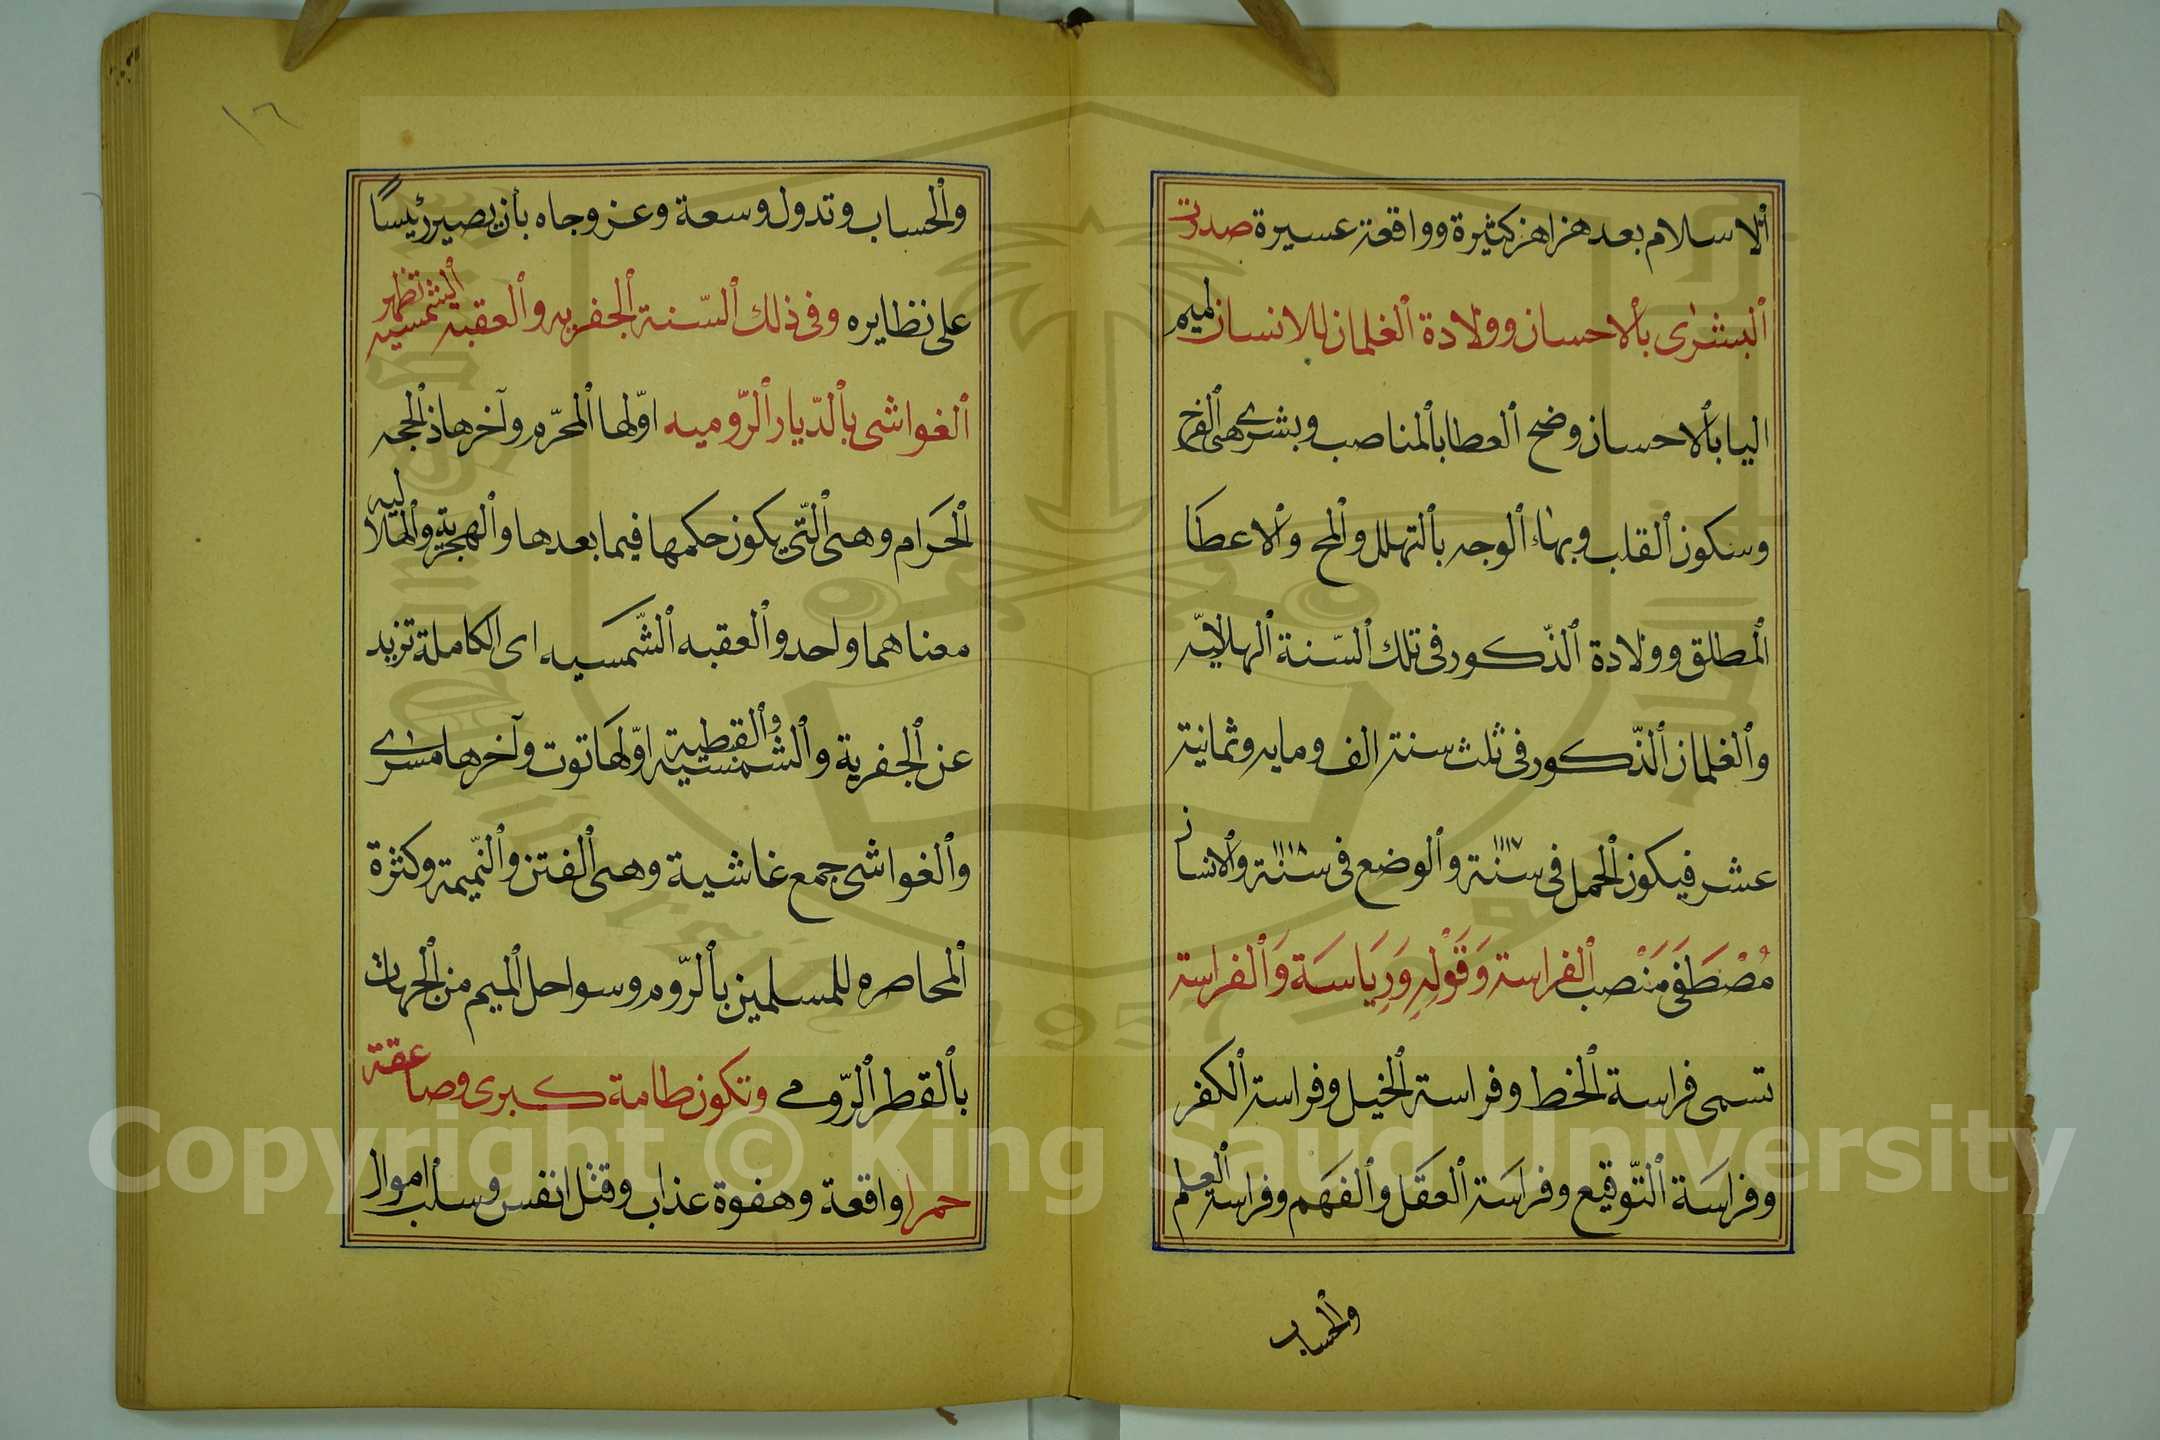 الاسلام بعد هزاهز كثيرة وواقعة عسيرة صدرت
البشرى بالاحسان وولادة الغلمان للانسان لميم
اليا بالاحسان وضح العطا بالمناصب وبشرى هى الفرح
وسكون القلب وبهاء الوجه بالتهلل والمح والاعطا
المطلق وولادة الذكور فى تلك السّنة الهلاليّه
والغلمان الذّكور فى ثلث سنة الف ومايه وثمانية
عشر فيكون الحمل فى سنة ١١١٧ والوضع فى سنة ١١١٨ والانسان
مُصْطَفى مَنْصب الفراسة وَقَوْلِهِ وَرِيَاسَة وَالفراسة
تسمى فراسة الخط وفراسة الخيل وفراسة الكفر
وفراسَة التّوقيع وفراسَة العقَل والفَهَم وفراسة العلم
والحساب
١٦
والحساب وتدول وسعة وعز وجاه بأن يصير رئيسًا
على نظايره وفى ذلك السّنة الجفريه والعقبه الشمسيه تظهر
الغواشى بالدّيار الرّوميه اوّلها المحرّم وآخرها ذالحجه
الحَرام وهى الّتى يكون حكمها فيما بعدها والهجرية والهلاليه
معناهما واحد والعقبه الشّمسيه اى الكاملة تزيد
عن الجفرية والشمسية والقطبية اوّلهَا توت وآخرها مسرى
والغواشى جمع غاشية وهى الفتن والنّميمة وكثرة
المحاصره للمسلمين بالرّوم وسواحل الميم من الجهات
بالقطر الرّومى وتكون طامة كبرى وصاعقة
حمرا واقعة وهفوة عذاب وقتل انفس وسلب اموال
Copyright © King Saud University
1957